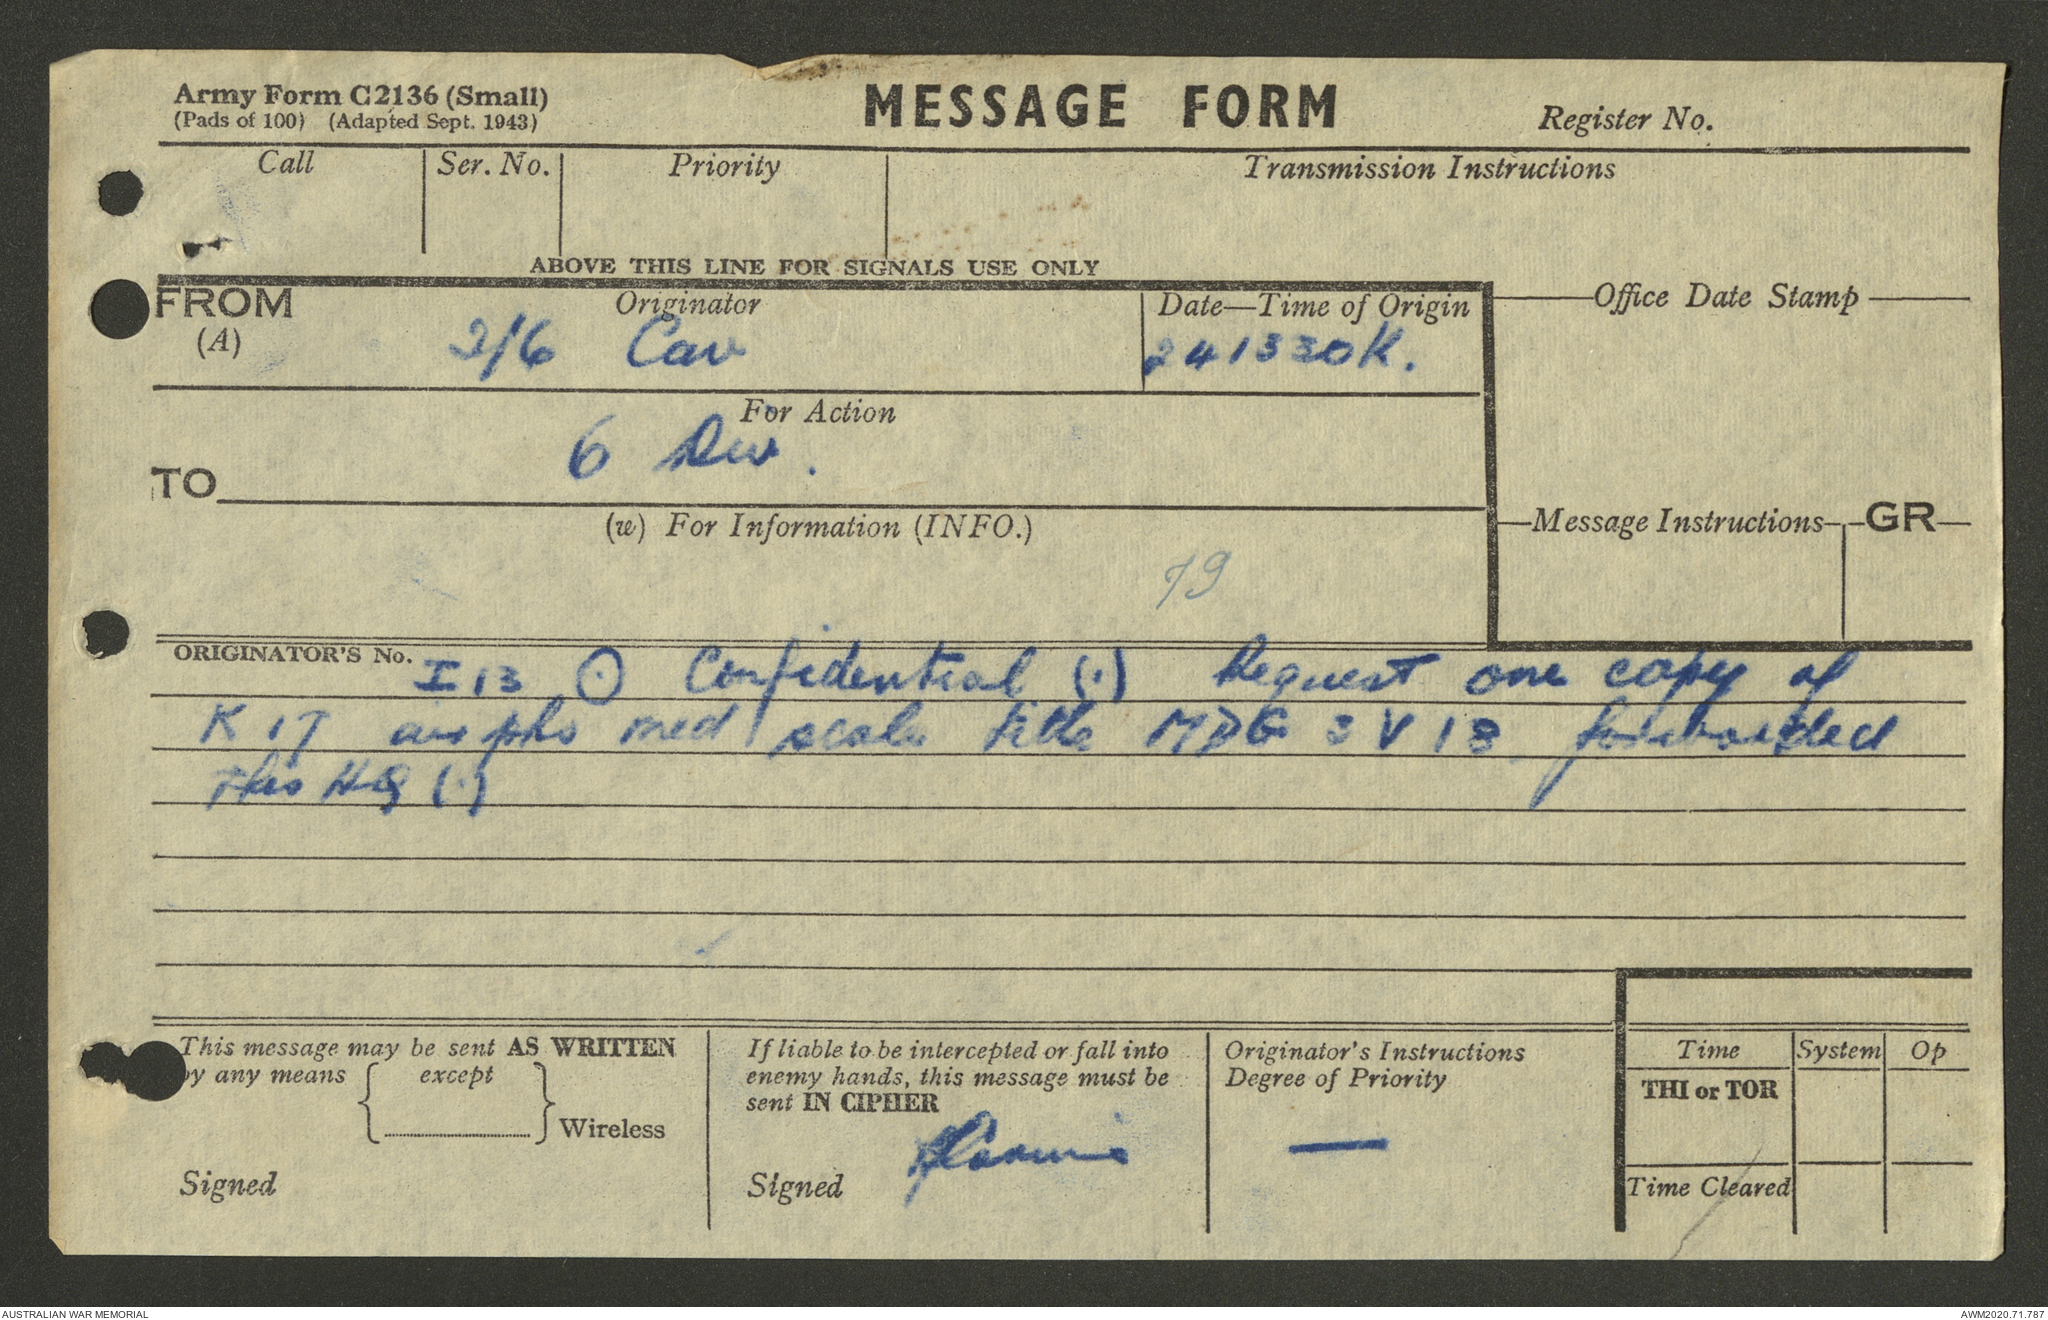 Army Form C2136 (Small)
(Pads of 100) (Adapted Sept. 1943)
MESSAGE FORM
Register No.
Call
Ser. No.
Priority
Transmission Instructions
ABOVE THIS LINE FOR SIGNALS USE ONLY
FROM
(A)
Originator
2/6 Cav
Date—Time of Origin
241330K.
Office Date Stamp
For Action
6 Div.
TO
(w) For Information (INFO.)
79
Message Instructions
GR
ORIGINATOR'S No.
I 13 (.) Confidential (.) Request one copy of
K 17 air pho med scale title MDG 3 V 13 forwarded
this HQ (.)
This message may be sent AS WRITTEN
by any means except
Wireless
Signed
If liable to be intercepted or fall into
enemy hands, this message must be
sent IN CIPHER
Signed
Originator's Instructions
Degree of Priority
—
Time
System
Op
THI or TOR
Time Cleared
AUSTRALIAN WAR MEMORIAL
AWM2020.71.787